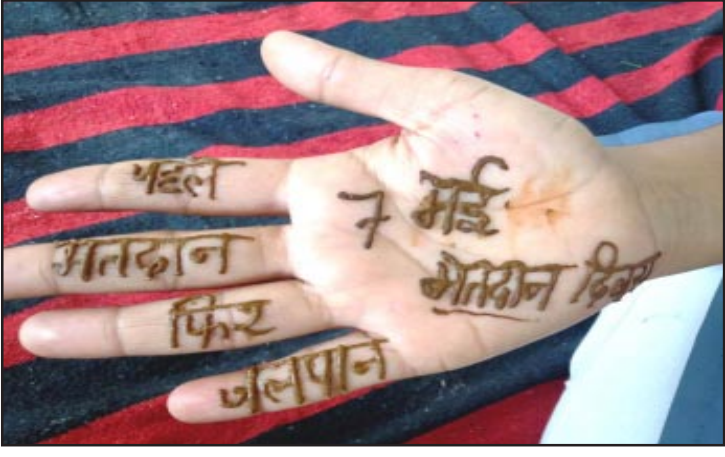 पहले
मतदान
फिर
जलपान
7 मई
मतदान दिवस